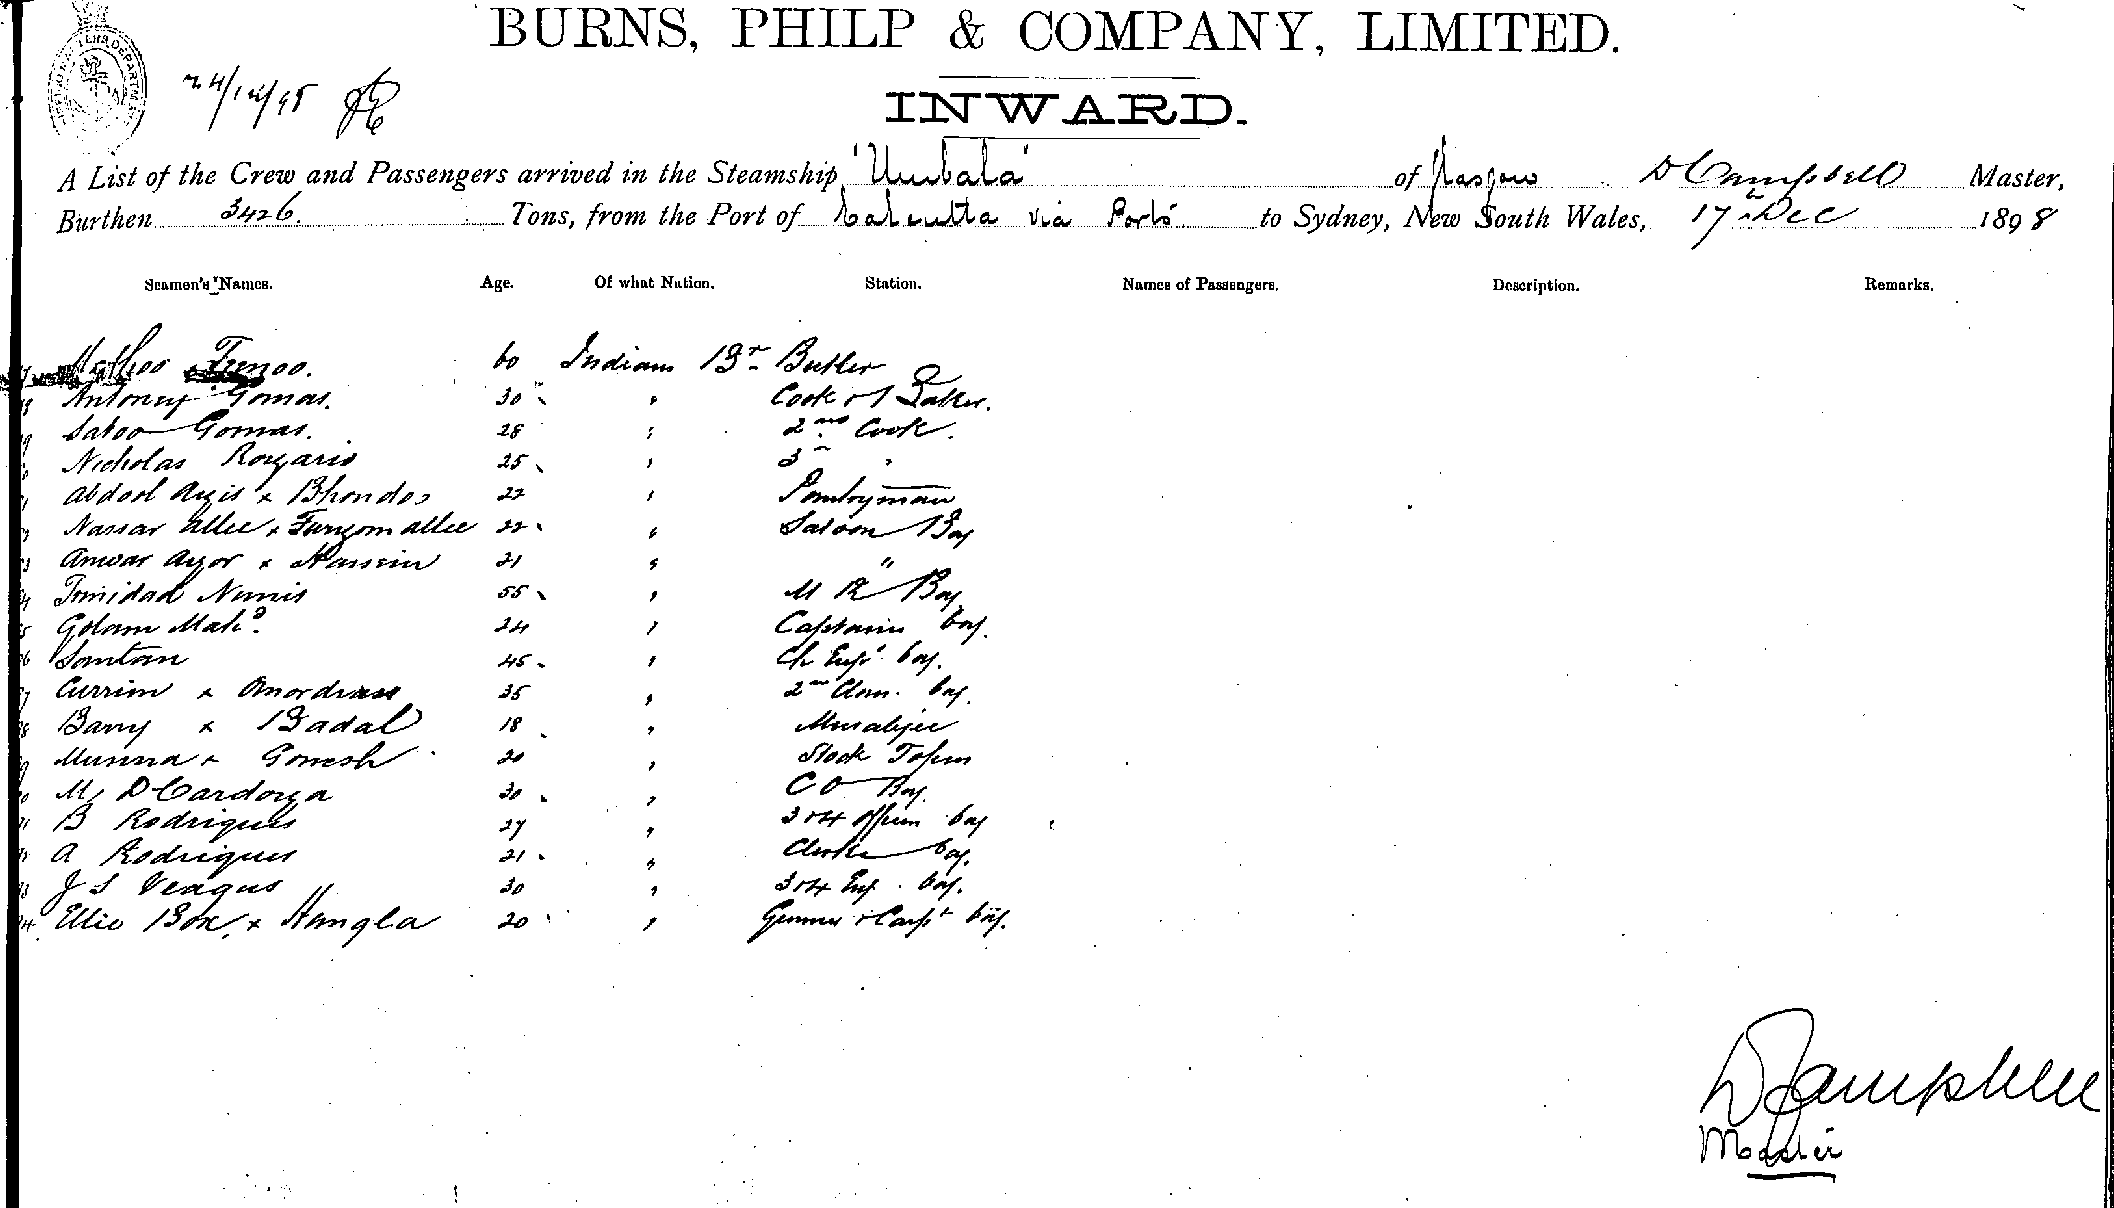 BURNS, PHILP & COMPANY, LIMITED.
INWARD.
A List of the Crew and Passengers arrived in the Steamship 'Umbala' of Glasgow D Campbell Master,
Burthen 3426. Tons, from the Port of Calcutta via Ports to Sydney, New South Wales, 17th Dec 1898
Seamen's Names. Age. Of what Nation. Station. Names of Passengers. Description. Remarks.
60 Indian Br Butler
Antoney Gomas. 30 " Cook & Baker.
Gomas. 28 " 2nd Cook.
Nicholas Rozario 25 " 3rd "
Abdool Azis x Bhondoo 22 " Pantryman
Nassar Allee x Furzom allee 22 " Saloon Boy
Anwar x Hassein 21 " "
Trinidad Nunis 55 " M R Boy
Golam Mahd. 24 " Captains boy.
Santan 45 " Ch Engr boy.
Currim x 35 " 2nd Class. boy.
Barry x Badal 18 "
Munna x Gonesh 20 " Stock Topas
M, D Cardoza 30 " C O Boy.
B Rodrigues 27 " 3 & 4 Officers boy
A Rodrigues 21 " Clerks boy.
J S Veagus 30 " 3 & 4 Eng. boy.
Ellie Box x Hangla 20 " Gunner & Carpt boy.
D Campbell
Master